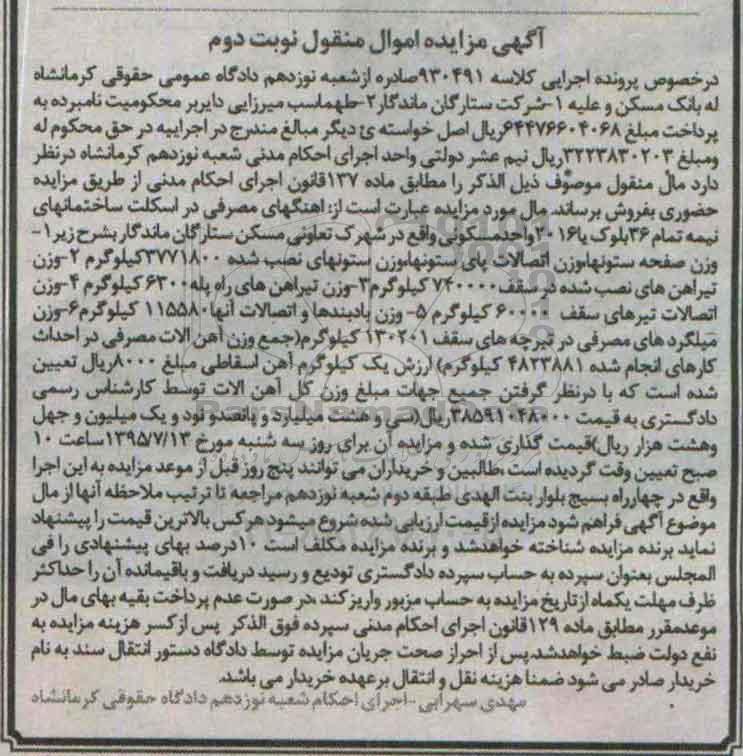 آگهی مزایده اموال منقول نوبت دوم
درخصوص پرونده اجرایی کلاسه ۹۳۰۴۹۱صادره ازشعبه نوزدهم دادگاه عمومی حقوقی کرمانشاه
له بانک مسکن و علیه ۱-شرکت ستارگان ماندگار۲-طهماسب میرزایی دایربر محکومیت نامبرده به
پرداخت مبلغ ۶۴۴۷۶۶۰۴۰۶۸ریال اصل خواسته ئ دیگر مبالغ مندرج در اجراییه در حق محکوم له
ومبلغ ۳۲۲۳۸۳۰۲۰۳ریال نیم عشر دولتی واحد اجرای احکام مدنی شعبه نوزدهم کرمانشاه درنظر
دارد مال منقول موصوف ذیل الذکر را مطابق ماده ۱۳۷قانون اجرای احکام مدنی از طریق مزایده
حضوری بفروش برساند. مال مورد مزایده عبارت است از: اهنگهای مصرفی در اسکلت ساختمانهای
نیمه تمام ۳۶بلوک یا۲۰۱۶واحدمسکونی واقع در شهرک تعاونی مسکن ستارگان ماندگار بشرح زیر ۱-
وزن صفحه ستونها،وزن اتصالات پای ستونها،وزن ستونهای نصب شده ۳۷۷۱۸۰۰کیلوگرم ۲-وزن
تیراهن های نصب شده در سقف ۷۴۰۰۰۰کیلوگرم۳-وزن تیراهن های راه پله۶۳۰۰ کیلوگرم ۴-وزن
اتصالات تیرهای سقف ۶۰۰۰۰ کیلوگرم ۵- وزن بادبندها و اتصالات آنها۱۱۵۵۸۰ کیلوگرم۶-وزن
میلگردهای مصرفی در تیرچه های سقف ۱۳۰۲۰۱ کیلوگرم(جمع وزن آهن الات مصرفی در احداث
کارهای انجام شده ۴۸۲۳۸۸۱ کیلوگرم) ارزش یک کیلوگرم آهن اسقاطی مبلغ ۸۰۰۰ریال تعیین
شده است که با درنظر گرفتن جمیع جهات مبلغ وزن کل آهن الات توسط کارشناس رسمی
دادگستری به قیمت ۳۸۵۹۱۰۴۸۰۰۰ریال(سی و هشت میلیارد و پانصدو نود و یک میلیون و چهل
وهشت هزار ریال)قیمت گذاری شده و مزایده آن برای روز سه شنبه مورخ ۱۳۹۵/۷/۱۳ساعت ۱۰
صبح تعیین وقت گردیده است ،طالبین و خریداران می توانند پنج روز قبل از موعد مزایده به این اجرا
واقع در چهارراه بسیج بلوار بنت الهدی طبقه دوم شعبه نوزدهم مراجعه تا ترتیب ملاحظه آنها از مال
موضوع آگهی فراهم شود مزایده ازقیمت ارزیابی شده شروع میشود هرکس بالاترین قیمت را پیشنهاد
نماید برنده مزایده شناخته خواهدشد و برنده مزایده مکلف است ۱۰درصد بهای پیشنهادی را فی
المجلس بعنوان سپرده به حساب سپرده دادگستری تودیع و رسید دریافت و باقیمانده آن را حداکثر
ظرف مهلت یکماه ازتاریخ مزایده به حساب مزبور واریز کند ،در صورت عدم پرداخت بقیه بهای مال در
موعدمقرر مطابق ماده ۱۲۹قانون اجرای احکام مدنی سپرده فوق الذکر پس ازکسر هزینه مزایده به
نفع دولت ضبط خواهدشد.پس از احراز صحت جریان مزایده توسط دادگاه دستور انتقال سند به نام
خریدار صادر می شود ضمنا هزینه نقل و انتقال برعهده خریدار می باشد.
مهدی سهرابی-اجرای احکام شعبه نوزدهم دادگاه حقوقی کرمانشاه